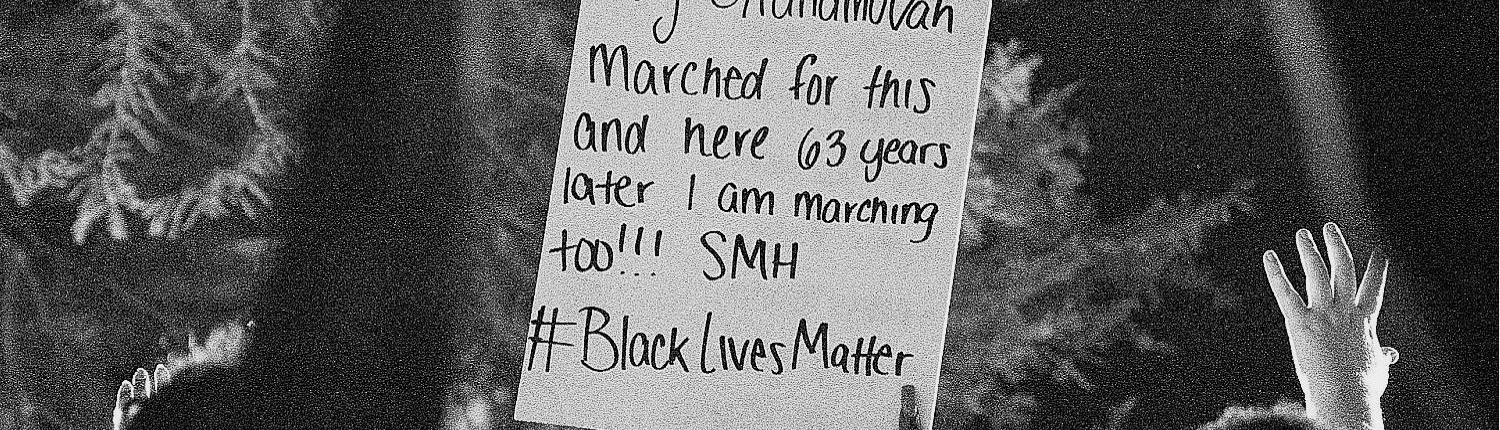 Marched for this
and here 63 years
later I am marching
too!!! SMH
#BlackLivesMatter